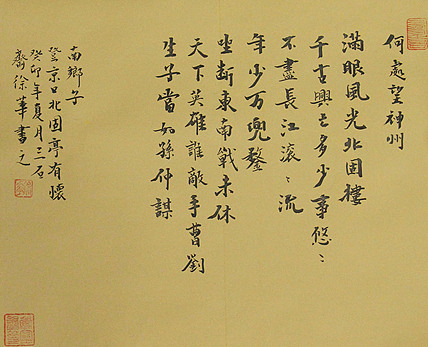 何處望神州
滿眼風光北固樓
千古興亡多少事悠〻
不盡長江滾〻流
年少万兜鍪
坐斷東南戰未休
天下英雄誰敵手曹劉
生子當如孫仲謀
南鄉子
登京口北固亭有懷
癸卯年夏月三石
齋徐華書之